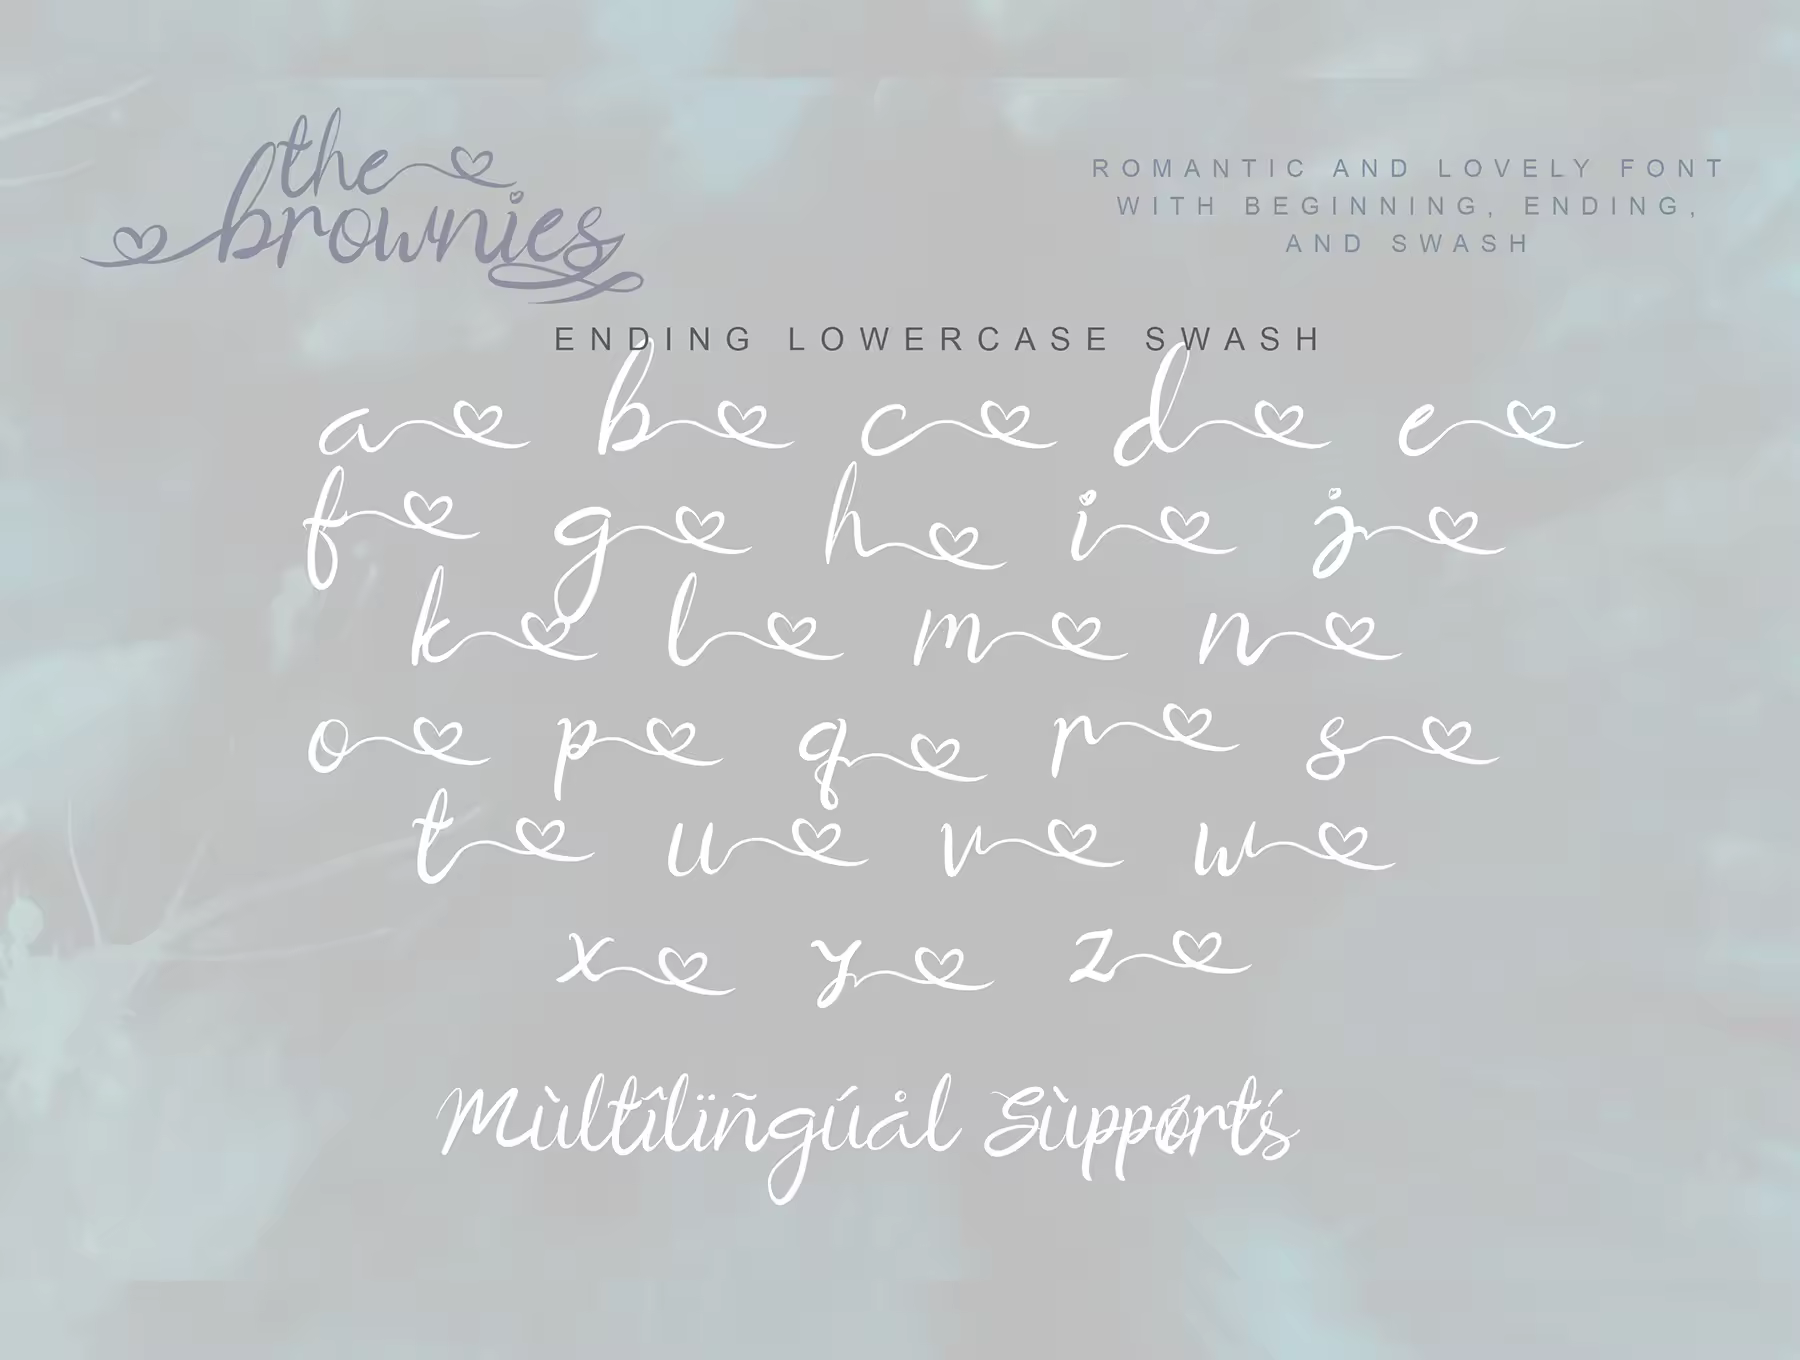 the
brownies
ROMANTIC AND LOVELY FONT
WITH BEGINNING, ENDING,
AND SWASH
ENDING LOWERCASE SWASH
a b c d e
f g h i j
k l m n
o p q r s
t u v w
x y z
Mùltîlïñgúål Sùppørtś